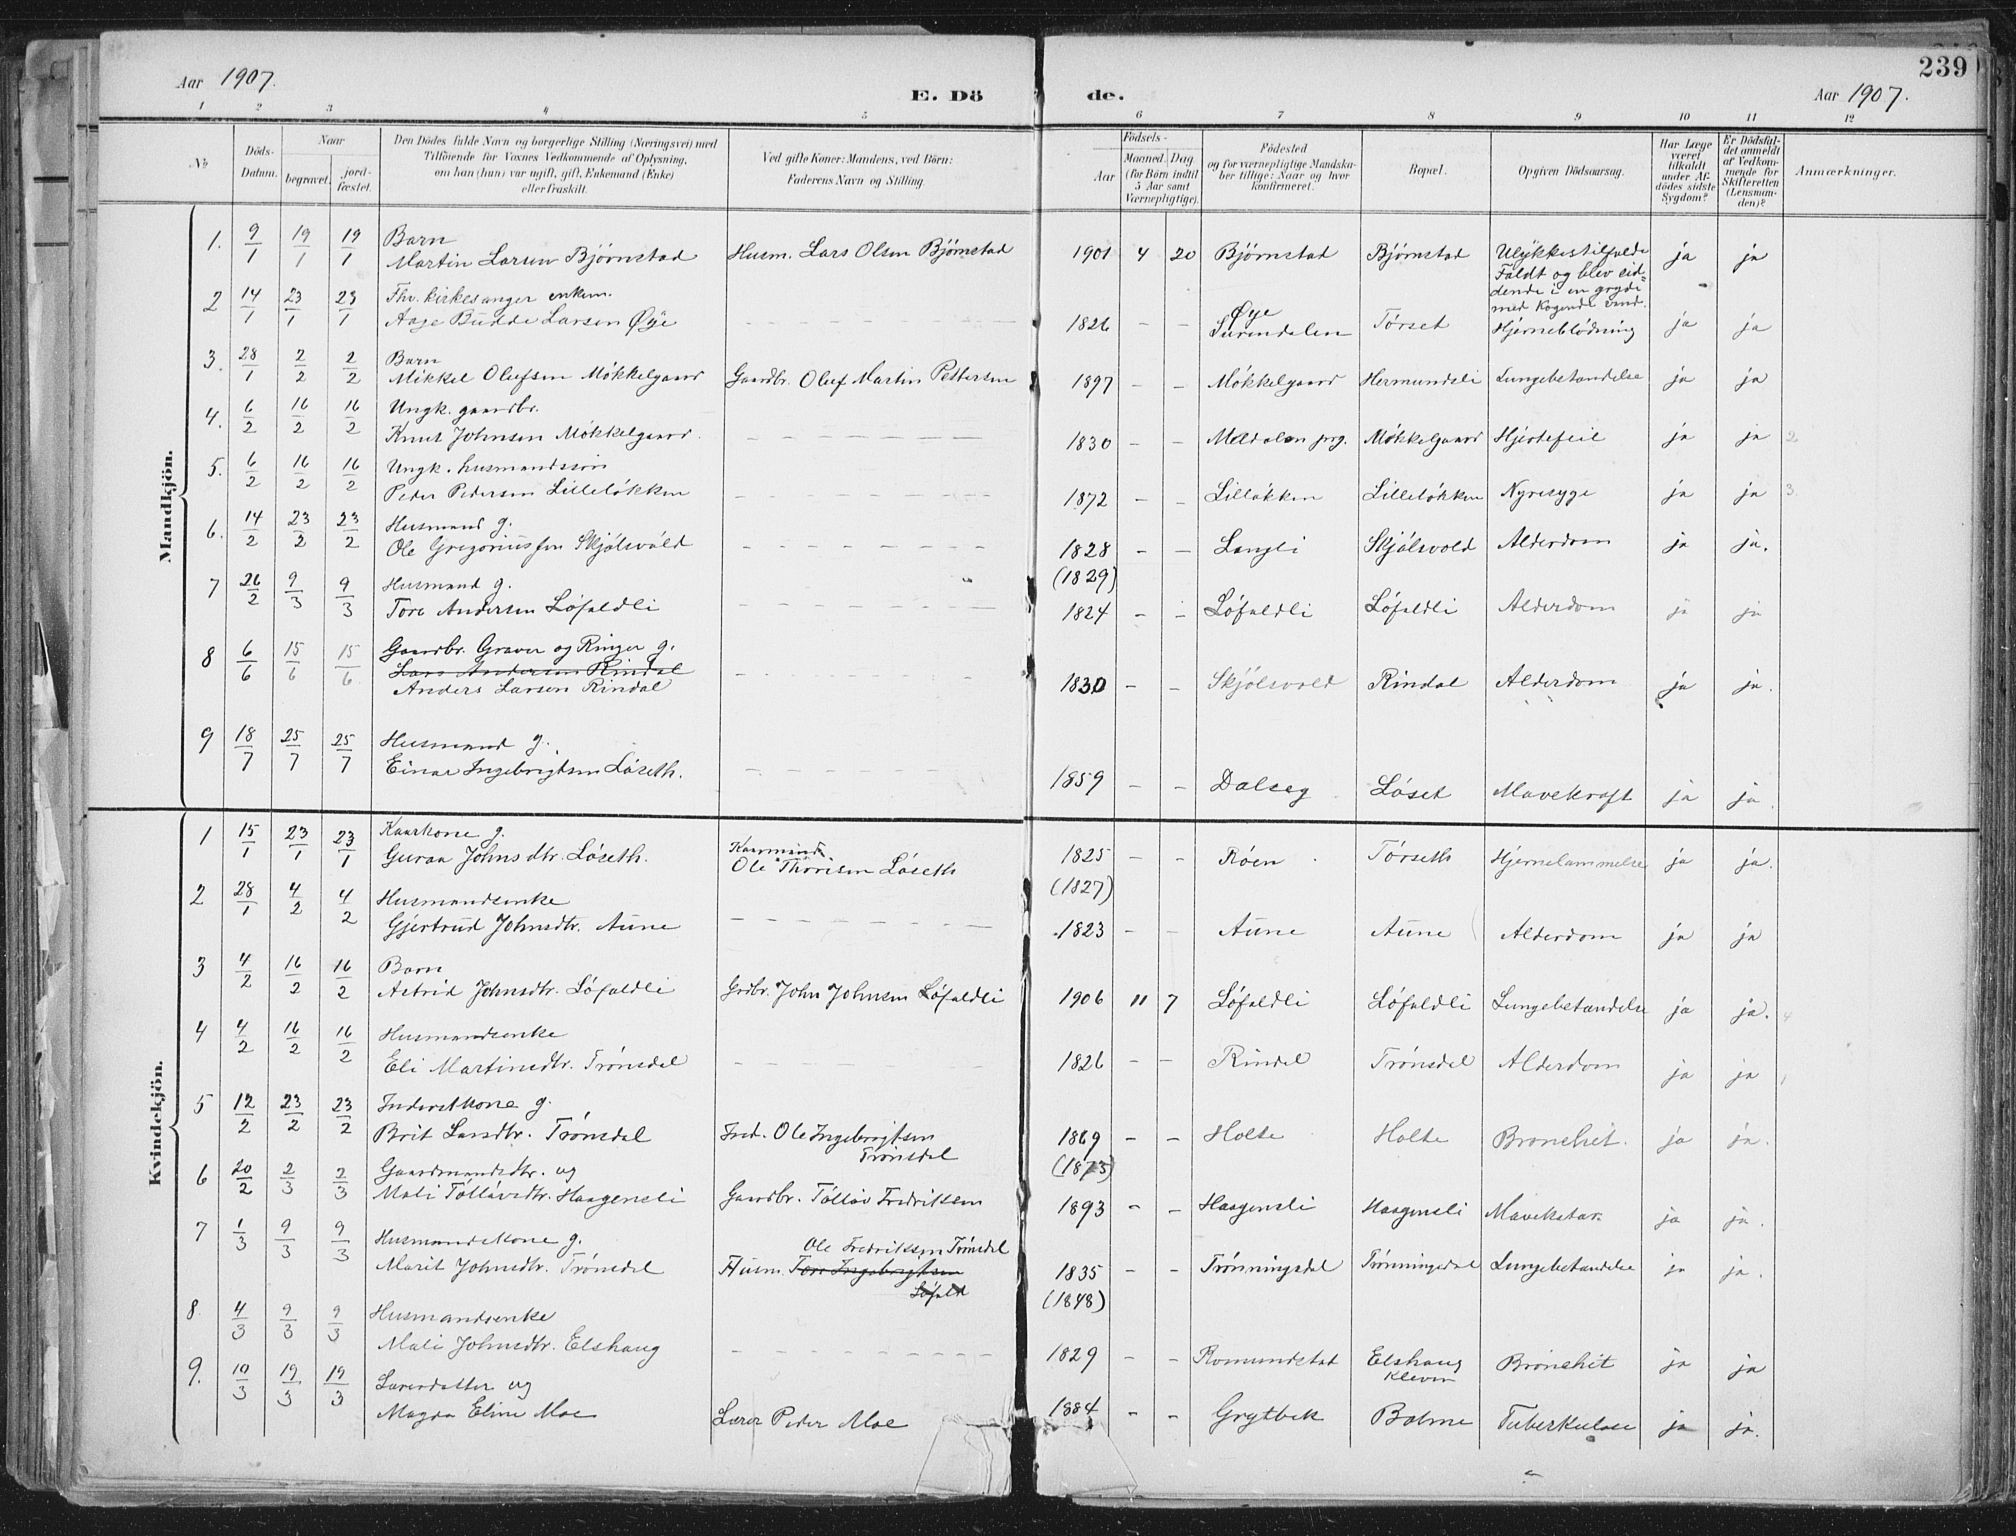 239
Aar 1907.
E. Dö
de.
Aar 1907.
1 2 3 4 5 6 7 8 9 10 11 12
No
Döds-Datum.
Naar
begravet.
jord-fæstet.
Den Dödes fulde Navn og borgerlige Stilling (Næringsvei) med
Tilföiende for Voxnes Vedkommende af Oplysning,
om han (hun) var ugift, gift, Enkemand (Enke)
eller fraskilt.
Ved gifte Koner: Mandens, ved Börn:
Faderens Navn og Stilling.
Födsels-
Aar
Maaned. Dag
(for Börn indtil
5 Aar samt
Værnepligtige).
Födested
og for værnepligtige Mandska-
ber tillige: Naar og hvor
konfirmeret.
Bopæl.
Opgiven Dödsaarsag.
Har Læge
været
tilkaldt
under Af-
dödes sidste
Sygdom?
Er Dödsfal-
det anmeldt
af Vedkom-
mende for
Skifteretten
(Lensman-
den)?
Anmærkninger.
Mandkjön.
1. 9/1 19/1 19/1 Barn
Martin Larsen Bjørnstad Husm. Lars Olsen Bjørnstad 1901 4 20 Bjørnstad Bjørnstad Ulykkestilfælde ja ja
Faldt og blev sid-
dende i en gryde
med kogende vand.
2 14/1 23/1 23/1 Fhv. kirkesanger enkem.
Aage Budde Larsen Øye 1826 - - Øye
Surendalen Tørset Hjerneblødning ja ja
3. 28/1 2/2 2/2 Barn
Mikkel Olufsen Møkkelgaard Gaardbr. Oluf Martin Pettersen 1897 - - Møkkelgaard Hermundsli Lungebetændelse ja ja
4. 6/2 16/2 16/2 Ungk. gaardbr.
Knut Johnsen Møkkelgaard. 1830 - - Meldalen prg. Møkkelgaard Hjertefeil ja ja 2
5. 6/2 16/2 16/2 Ungk. husmandssøn
Peder Pedersen Lilleløkken 1872 - - Lilløkken Lilleløkken Nyresyge ja ja 3
6. 14/2 23/2 23/2 Husmand g.
Ole Gregoriussen Skjølsvold 1828 - - Langli Skjølsvold Alderdom ja ja.
(1829)
7 26/2 9/3 9/3 Husmand g.
Tore Andersen Løfaldli 1824 - - Løfaldli Løfaldli Alderdom ja ja
8 6/6 15/6 15/6 Gaardbr. Graver og Ringer g.
Lars Andersen Rindal
Anders Larsen Rindal 1830 - - Skjølsvold Rindal Alderdom ja ja.
9 18/7 25/7 25/7 Husmand g.
Einar Ingebrigtsen Løseth. 1859 - - Dalseg Løset Mavekræft ja ja.
Kvindekjön.
1 15/1 23/1 23/1 Kaarkone g.
Guraa Johnsdtr. Løseth. Kaarmand
Ole Thoresen Løseth 1825 - - Røen Tørseth Hjernelammelse ja ja.
(1827)
2 28/1 4/2 4/2 Husmandsenke
Gjertrud Johnsdtr. Aune 1823 - - Aune Aune Alderdom ja ja
3 4/2 16/2 16/2 Barn
Astrid Johnsdtr. Løfaldli Grdbr. John Johnsen Løfaldli 1906 11 7 Løfaldli Løfaldli Lungebetændelse ja ja. 4
4 4/2 16/2 16/2 Husmandsenke
Eli Martinsdtr. Trønsdal 1826 - - Rindal Trønsdal Alderdom ja ja 1
5 12/2 23/2 23/2 Inderstkone g.
Brit Larsdtr. Trønsdal Ind. Ole Ingebrigtsen
Trønsdal 1869 - - Holte Holte Bronchit. ja ja.
(1873)
6 20/2 2/3 2/3 Gaardmandsdtr. ug
Mali Tøllavsdtr. Haagensli Gaardbr. Tøllav Fredriksen 1893 - - Haagensli Haagensli Mavekatar. ja ja.
7 1/3 9/3 9/3 Husmandskone g. Ole Fredriksen Trønsdal
Marit Johnsdtr. Trønsdal Husm. Tore Ingebrigtsen
Løfald 1835 - - Trønningsdal Trønningsdal Lungebetændelse ja ja.
(1848)
8. 4/3 9/3 9/3 Husmandsenke
Mali Johnsdtr. Elshaug 1829 - - Romundstad Elshaug
Kleven Bronchit ja ja
9. 10/3 19/3 19/3 Lærerdatter ug
Magda Eline Moe Lærer Peder Moe 1884 - - Grytbak Bolme Tuberkulose ja ja.